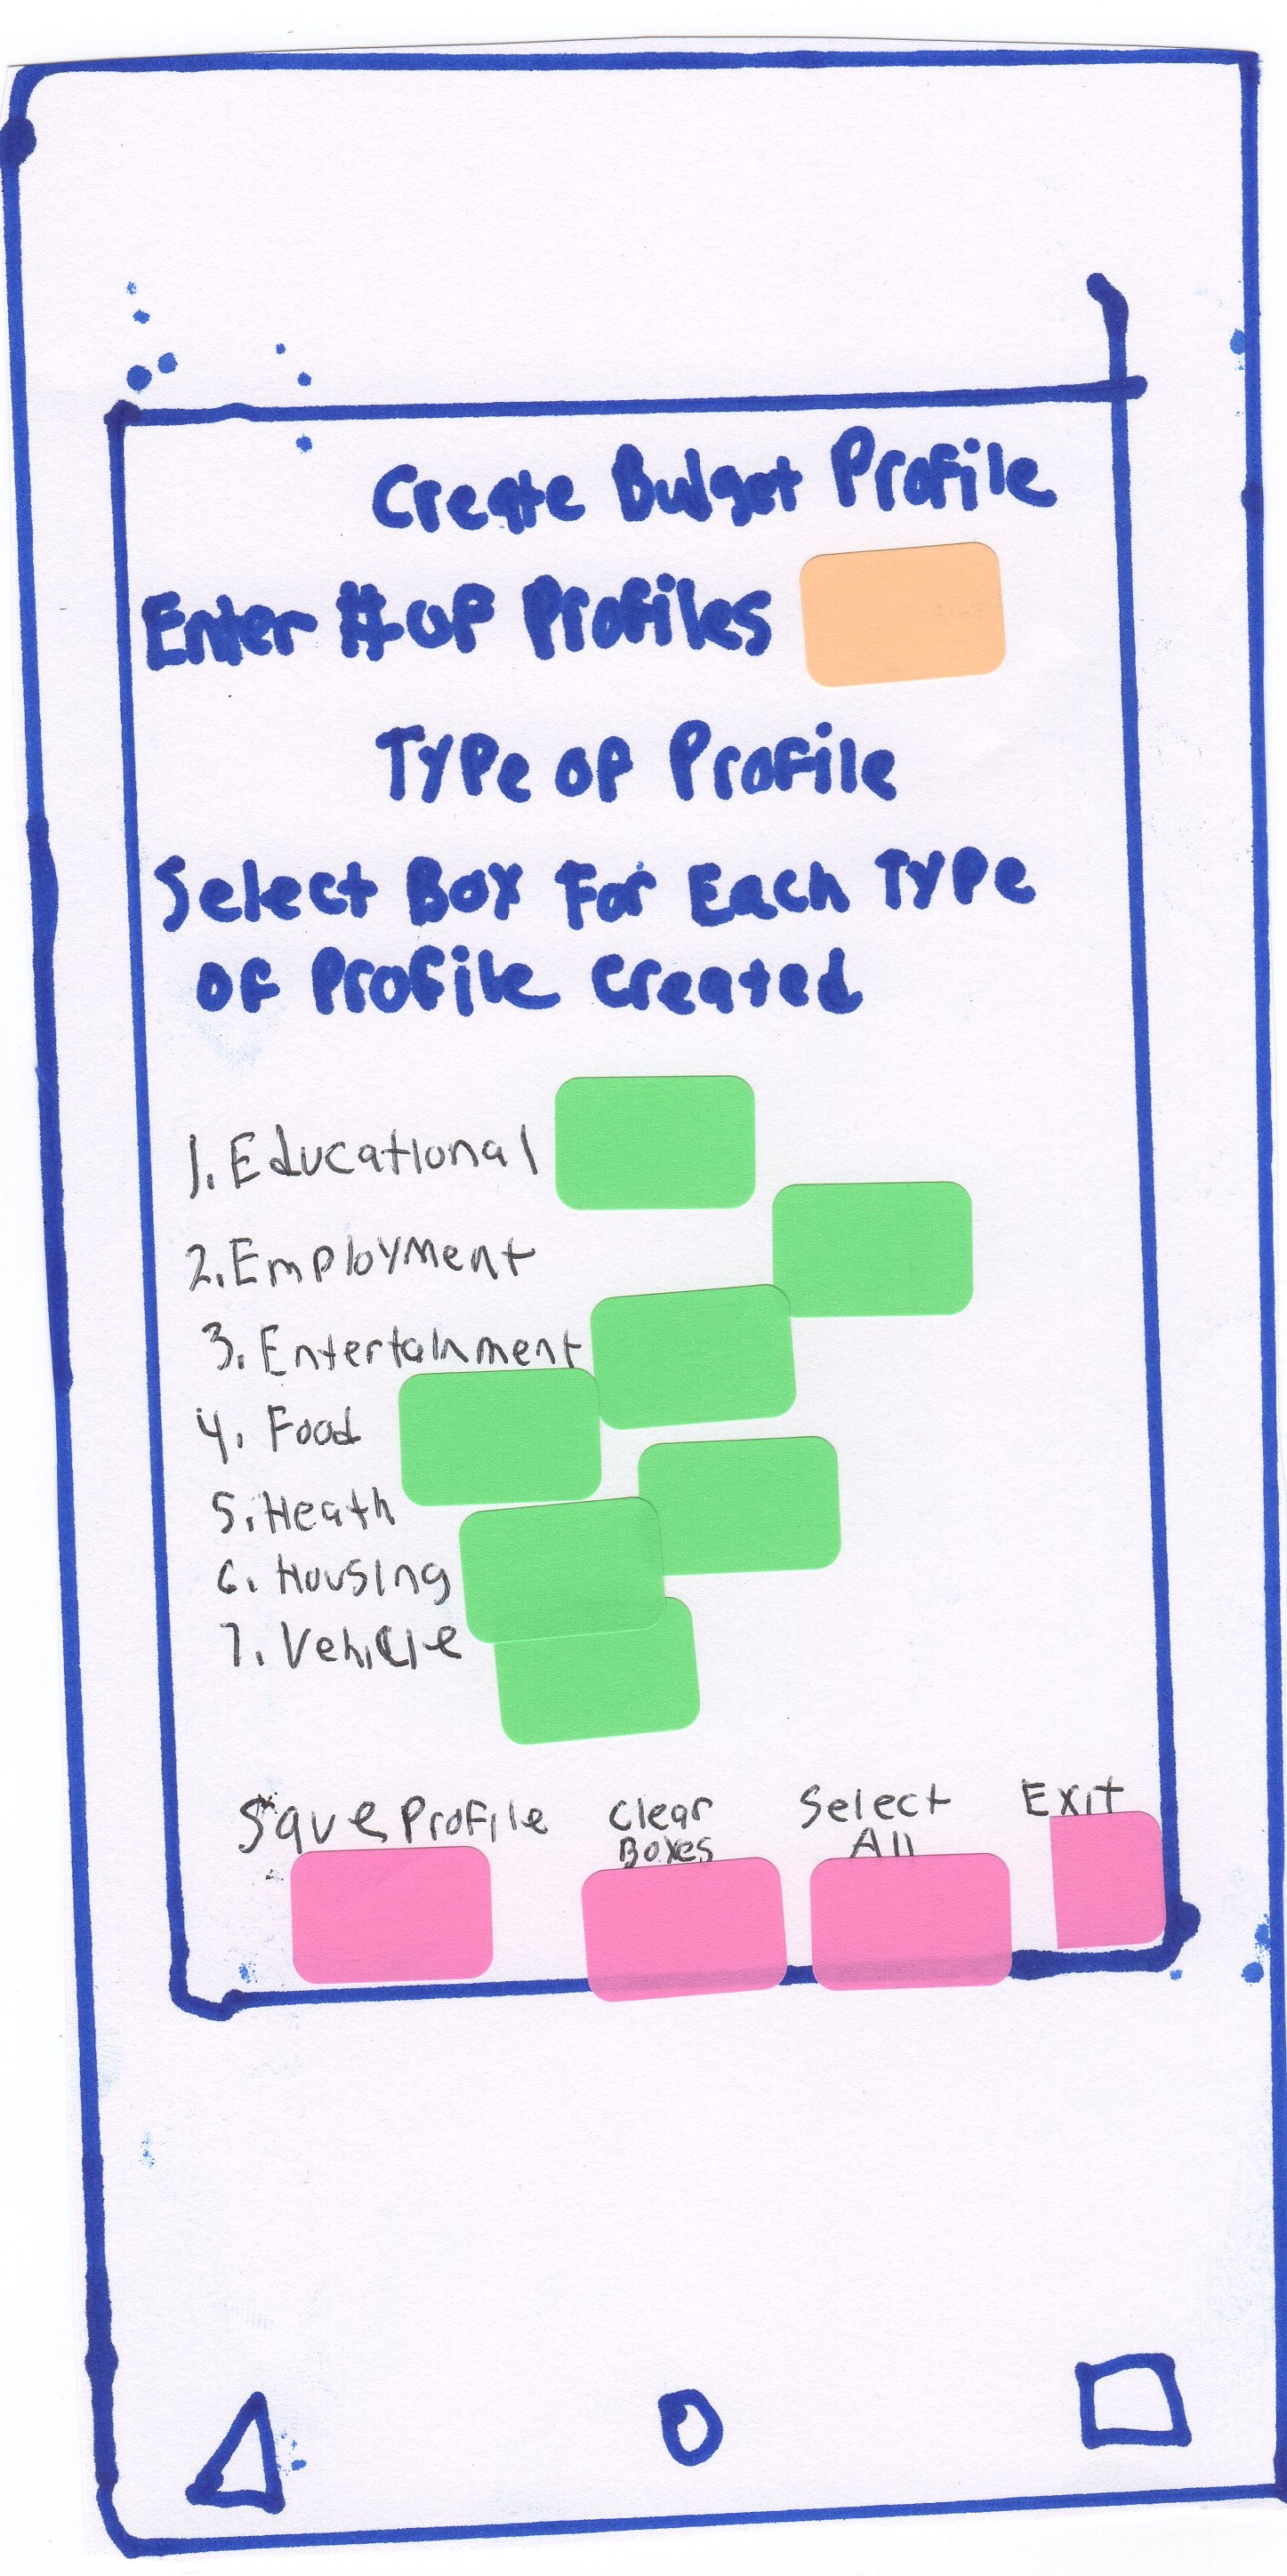 Create Budget Profile
Enter # of Profiles
Type of Profile
Select Box For Each Type
of Profile Created
1. Educational
2. Employment
3. Entertainment
4. Food
5. Heath
6. Housing
7. Vehicle
Save Profile Clear Boxes Select All Exit